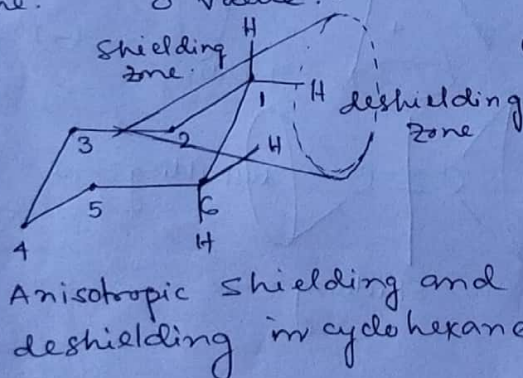 shielding
zone.
H
1
H
deshielding
zone
3
2
H
5
6
H
4
Anisotropic shielding and
deshielding in cyclohexane